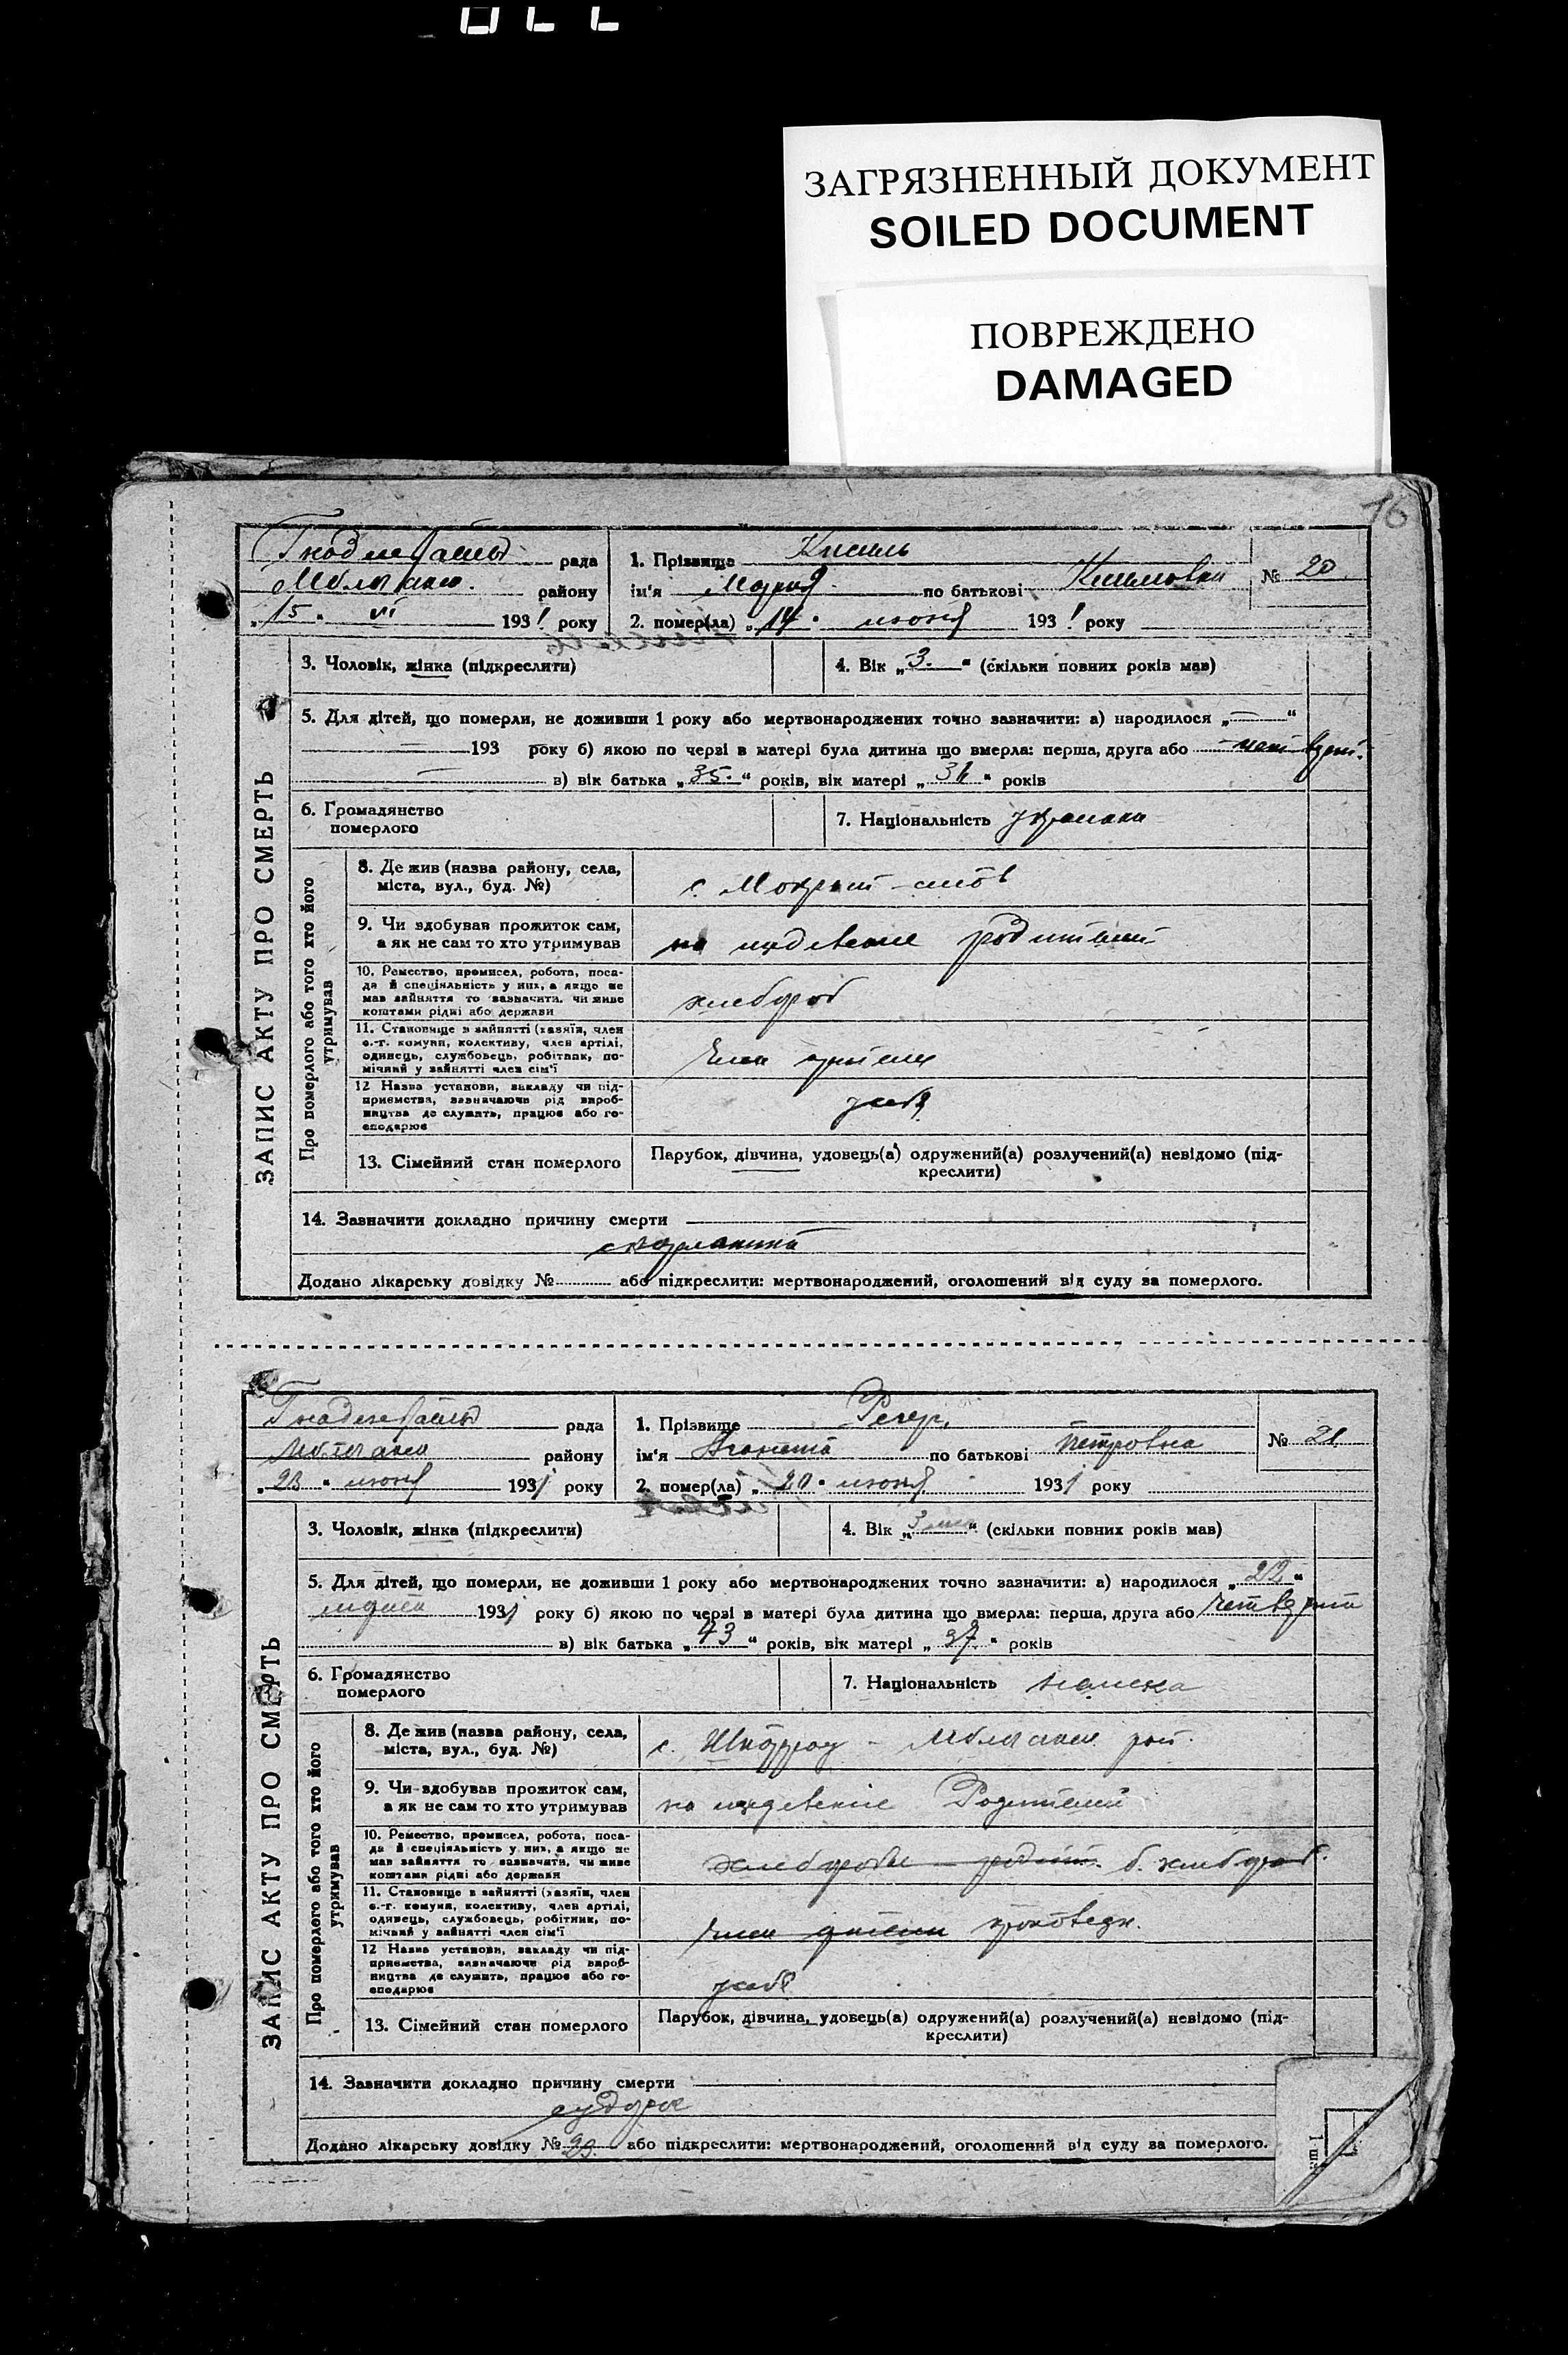 ЗАГРЯЗНЕННЫЙ ДОКУМЕНТ
SOILED DOCUMENT
ПОВРЕЖДЕНО
DAMAGED
16
рада
району
"15" VI 1931 року
1. Прізвище
ім'я Мария по батькові
2. помер(ла) "14" июня 1931 року
№ 20
ЗАПИС АКТУ ПРО СМЕРТЬ
3. Чоловік, жінка (підкреслити)
4. Вік "3." (скільки повних років мав)
5. Для дітей, що померли, не доживши 1 року або мертвонароджених точно зазначити: а) народилося "—"
— 193 року б) якою по черзі в матері була дитина що вмерла: перша, друга або
— в) вік батька "35." років, вік матері " " років
6. Громадянство
померлого
7. Національність
Про померлого або того хто його
утримував
8. Де жив (назва району, села,
міста, вул., буд. №)
с.
9. Чи здобував прожиток сам,
а як не сам то хто утримував
на иждевение родителей
10. Ремество, промисел, робота, поса-
да й спеціяльність у них, а якщо не
мав зайняття то зазначити, чи живе
коштами рідні або держави
хлебороб
11. Становище в зайнятті (хазяїн, член
с.-г. комуни, колективу, член артілі,
одинець, службовець, робітник, по-
мічний у зайнятті член сім'ї
член артели
12 Назва установи, закладу чи під-
приємства, зазначаючи рід вироб-
ництва де служить, працює або го-
сподарює
13. Сімейний стан померлого
Парубок, дівчина, удовець(а) одружений(а) розлучений(а) невідомо (під-
креслити)
14. Зазначити докладно причину смерти
скарлатина
Додано лікарську довідку № або підкреслити: мертвонароджений, оголошений від суду за померлого.
Гнаденфельд рада
району
"23" июня 1931 року
1. Прізвище Регер.
ім'я Аганета по батькові Петровна
2. помер(ла) "20" июня 1931 року
№ 21
ЗАПИС АКТУ ПРО СМЕРТЬ
3. Чоловік, жінка (підкреслити)
4. Вік "3" (скільки повних років мав)
5. Для дітей, що померли, не доживши 1 року або мертвонароджених точно зазначити: а) народилося "22"
1931 року б) якою по черзі в матері була дитина що вмерла: перша, друга або
в) вік батька "43" років, вік матері "37" років
6. Громадянство
померлого
7. Національність немска
Про померлого або того хто його
утримував
8. Де жив (назва району, села,
міста, вул., буд. №)
с.
9. Чи здобував прожиток сам,
а як не сам то хто утримував
на иждевение Родителей
10. Ремество, промисел, робота, поса-
да й спеціяльність у них, а якщо не
мав зайняття то зазначити, чи живе
коштами рідні або держави
б. хлебороб.
11. Становище в зайнятті (хазяїн, член
с.-г. комуни, колективу, член артілі,
одинець, службовець, робітник, по-
мічний у зайнятті член сім'ї
член артели проповедн.
12 Назва установи, закладу чи під-
приємства, зазначаючи рід вироб-
ництва де служить, працює або го-
сподарює
13. Сімейний стан померлого
Парубок, дівчина, удовець(а) одружений(а) розлучений(а) невідомо (під-
креслити)
14. Зазначити докладно причину смерти
Додано лікарську довідку № або підкреслити: мертвонароджений, оголошений від суду за померлого.